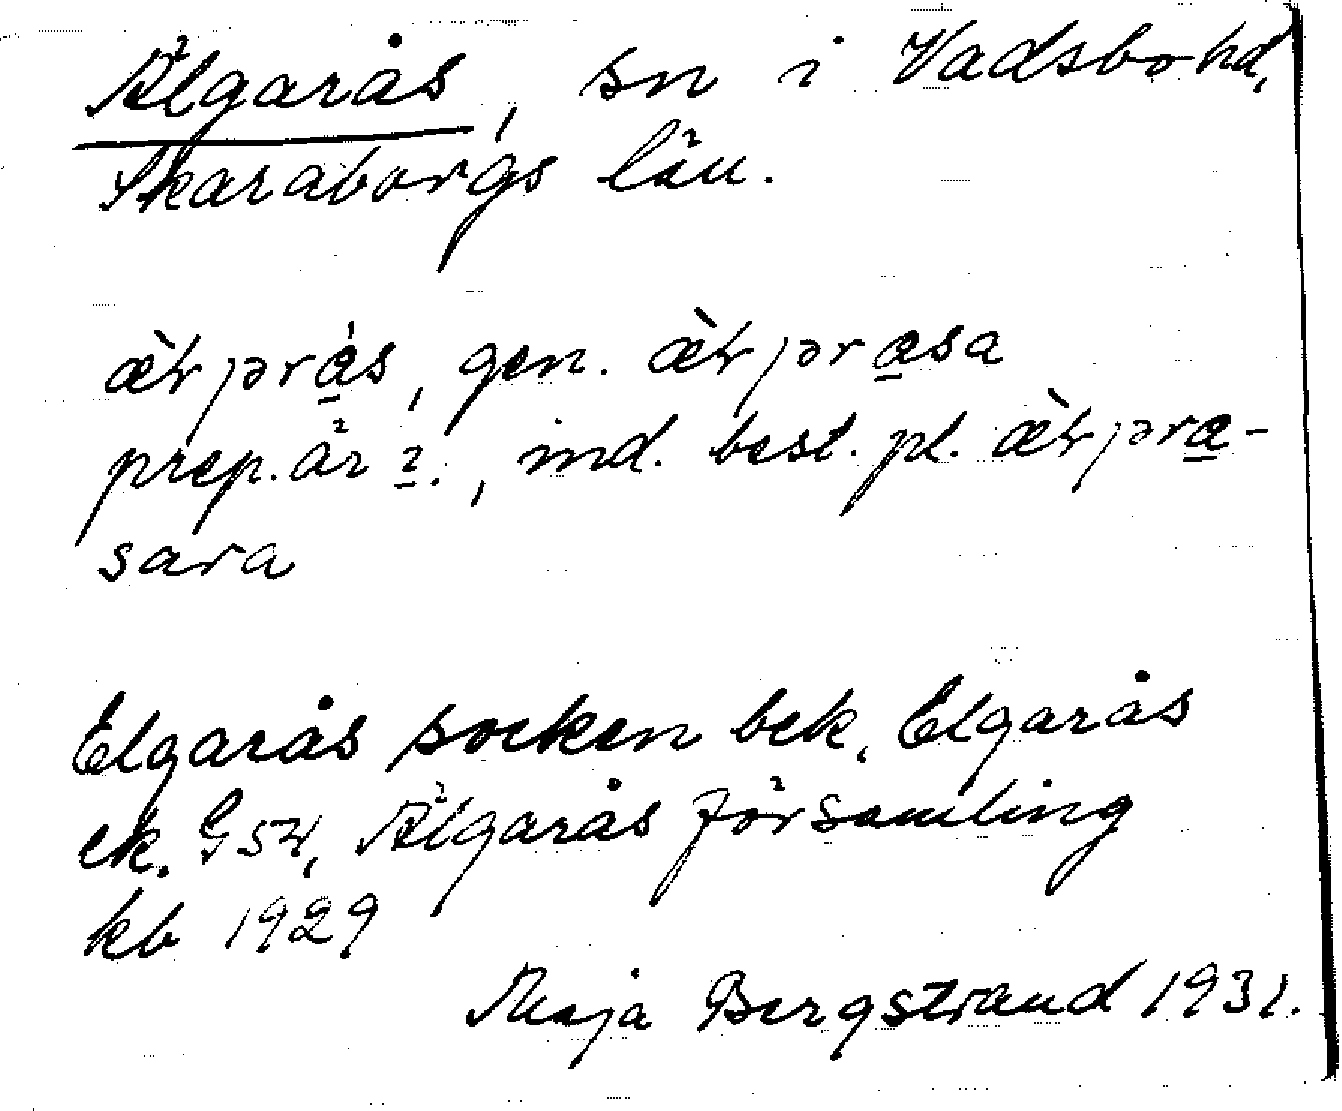 Älgarås, sn i Vadsbo hd,
Skaraborgs län.
gen.
prep. är 2., ind. best. pl.
sara
Elgarås socken bek. Elgarås
ek. G 54, Älgarås församling
kb 1929
Maja Bergstrand 1931.